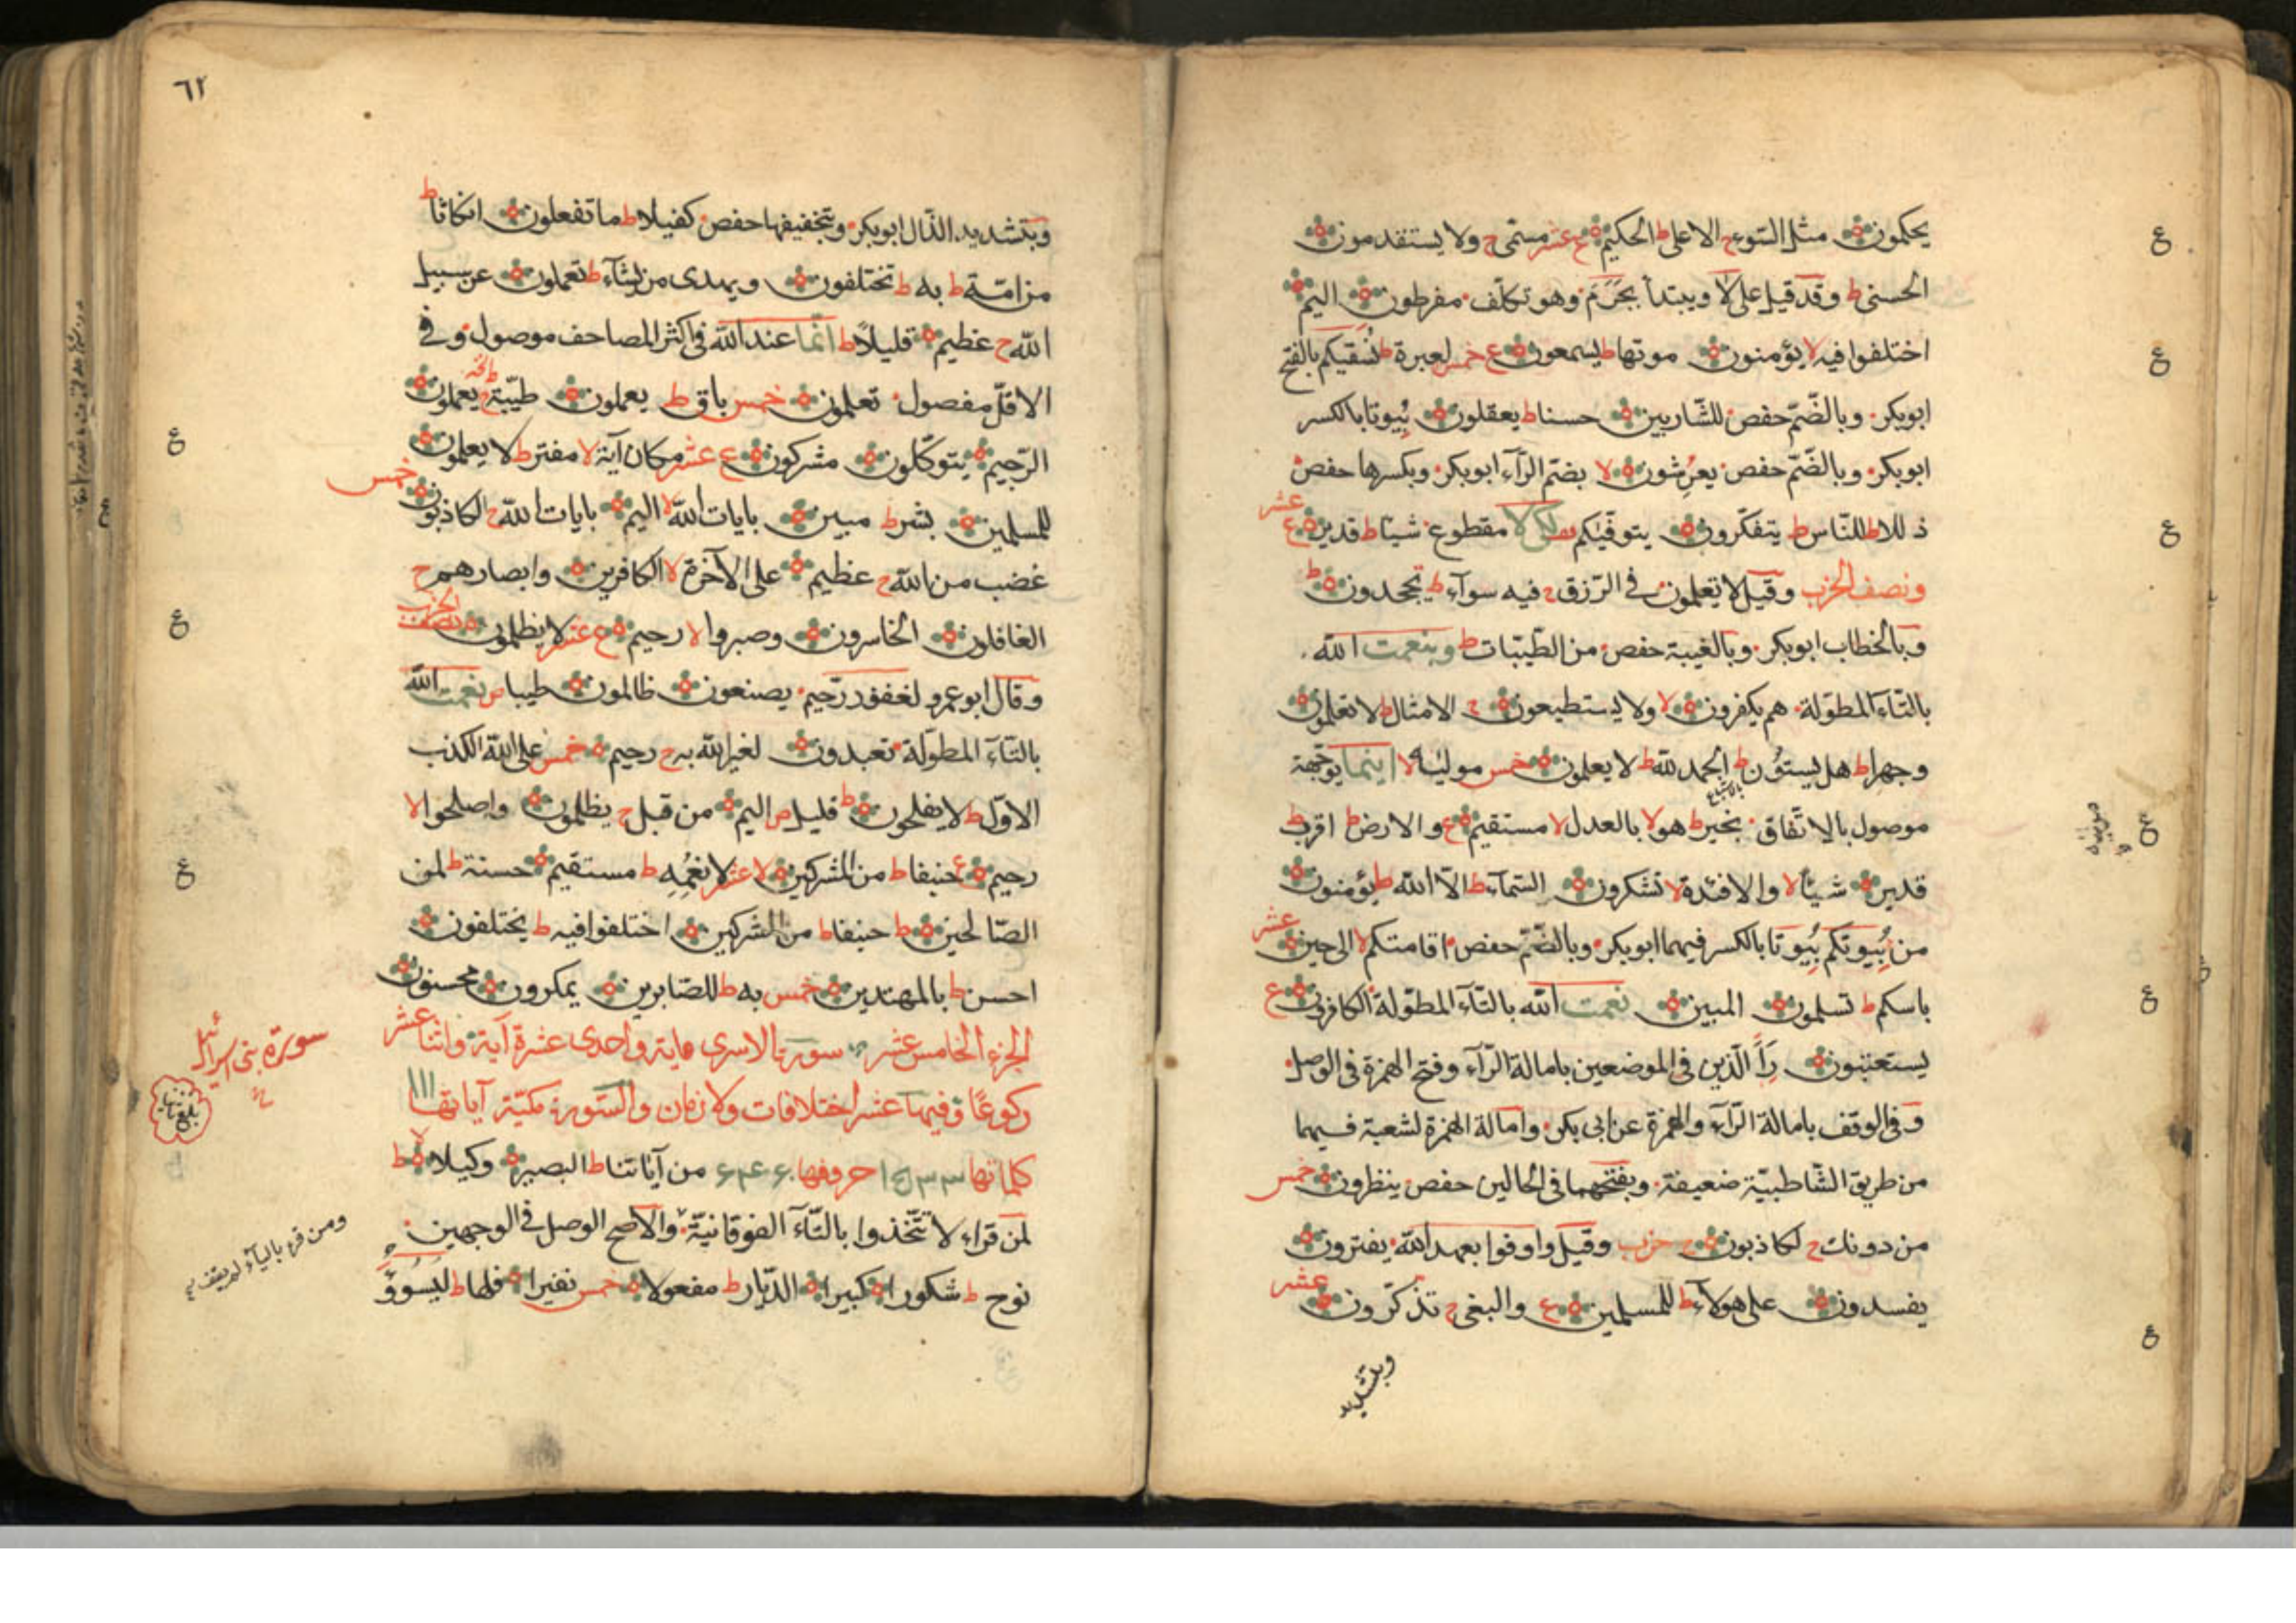 يحكمون مثل السوء ج الاعلى ط الحكيم ع عشر مسمى ج ولا يستقدمون
الحسنى ط وقد قيل على لا ويبتدأ بجرم وهو تكلف مفرطون اليم
اختلفوا فيه لا يؤمنون موتها ط يسمعون ع خمس لعبرة ط نسقيكم بالفتح
ابوبكر وبالضّم حفص للشاربين حسنا ط يعقلون بيوتا بالكسر
ابوبكر وبالضّم حفص يعرشون لا بضم الرّآء ابوبكر وبكسرها حفص
عشر
ذللا ط للنّاس ط يتفكرون يتوفيكم لكي لا مقطوع شيئا ط قدير ع
ونصف الحزب وقيل لا تعلمون في الرّزق ج فيه سوآء ط يجحدون ط
وبالخطاب ابوبكر وبالغيبة حفص من الطيبات ط وبنعمت الله
بالتّاء المطولة هم يكفرون لا ولا يستطيعون ج الامثال ط لا تعلمون
وجهرا ط هل يستون ط الحمد لله ط لا يعلمون خمس موليه لا اينما يوجهة
موصول بالاتفاق بخير ط هو لا بالعدل لا مستقيم ع والارض ط اقرب ط
قدير شيئا لا والافئدة لا تشكرون السّمآء ط الّا الله ط يؤمنون
من بيوتكم بيوتا بالكسر فيهما ابوبكر وبالضّم حفص اقامتكم لا الى حين
عشر
باسكم ط تسلمون المبين نعمت الله بالتّآء المطوّلة الكافرون ع
يستعتبون رأ الّذين في الموضعين بامالة الرّآء وفتح الهمزة في الوصل
وفي الوقف بامالة الرّآء والهمزة عن ابى بكر وامالة الهمزة لشعبة فيهما
من طريق الشّاطبيّة ضعيفة وبفتحهما في الحالين حفص ينظرون خمس
من دونك ج لكاذبون ج حزب وقيل واوفوا بعهد الله يفترون
يفسدون على هولآء ط للمسلمين ع والبغي ج تذكرون
عشر
وبتشديد
٦٢
وبتشديد الذّال ابوبكر وبتخفيفها حفص كفيلا ط ما تفعلون انكاثا ط
من امّة ط به ط تختلفون ويهدى من يشآء ط تعملون عن سبيل
الله ج عظيم قليلًا ط انّما عند الله في اكثر المصاحف موصول وفي
الاقلّ مفصول تعلمون خمس باق ط يعملون طيّبة ج يعملون
الرّجيم يتوكّلون مشركون ع عشر مكان آية لا مفتر ط لا يعلمون
خمس
للمسلمين بشر ط مبين بايات الله لا اليم بايات الله ج الكاذبون
غضب من الله ج عظيم على الآخرة لا الكافرين وابصارهم ج
الغافلون الخاسرون وصبروا لا رحيم ع عشر لا يظلمون نصف الحزب
وقال ابوعمرو لغفور رّحيم يصنعون ظالمون طيبا ص نعمت الله
بالتّآء المطوّلة تعبدون لغير الله به ج رحيم خمس على الله الكذب
الاوّل ط لا يفلحون ط قليل ص اليم من قبل ج يظلمون واصلحوا لا
رحيم ع حنيفا ط من المشركين لا عشر لانعمه ط مستقيم حسنة ط لمن
الصّالحين ط حنيفا ط من المشركين اختلفوا فيه ط يختلفون
احسن ط بالمهتدين خمس به ط للصّابرين يمكرون محسنون
الجزء الخامس عشر سورة الاسرى ماية واحدى عشرة آية واثنا عشر
سورة بنى اسرائيل
ركوعًا وفيها عشر اختلافات ولازمان والسّورة مكيّة آياتها ١١١
كلماتها حروفها من آياتنا ط البصير وكيلا لا ط
لمن قراء لا تتّخذوا بالتّآء الفوقانيّة والاصح الوصل في الوجهين
ومن قرء باليآء لم يقف
نوح ط شكورا كبيرا الدّيار ط مفعولا خمس نفيرا فلها ط ليسوؤ